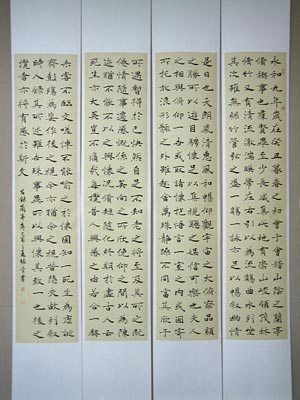 永和九年歲在癸丑暮春之初會于會稽山陰之蘭亭
脩禊事也群賢畢至少長咸集此地有崇山峻領茂林
脩竹又有清流激湍暎帶左右引以為流觴曲水列坐
其次雖無絲竹管弦之盛一觴一詠亦足以暢敘幽情
是日也天朗氣清惠風和暢仰觀宇宙之大俯察品類
之盛所以遊目騁懷足以極視聽之娛信可樂也夫人
之相與俯仰一世或取諸懷抱悟言一室之內或因寄
所託放浪形骸之外雖趣舍萬殊靜躁不同當其欣於
所遇暫得於己快然自足不知老之將至及其所之既
倦情隨事遷感慨係之矣向之所欣俛仰之間以為陳
迹猶不能不以之興懷況脩短隨化終期於盡古人云
死生亦大矣豈不痛哉每攬昔人興感之由若合一契
未嘗不臨文嗟悼不能喻之於懷固知一死生為虛誕
齊彭殤為妄作後之視今亦由今之視昔悲夫故列敘
時人錄其所述雖世殊事異所以興懷其致一也後之
攬者亦將有感於斯文 右錄蘭亭序